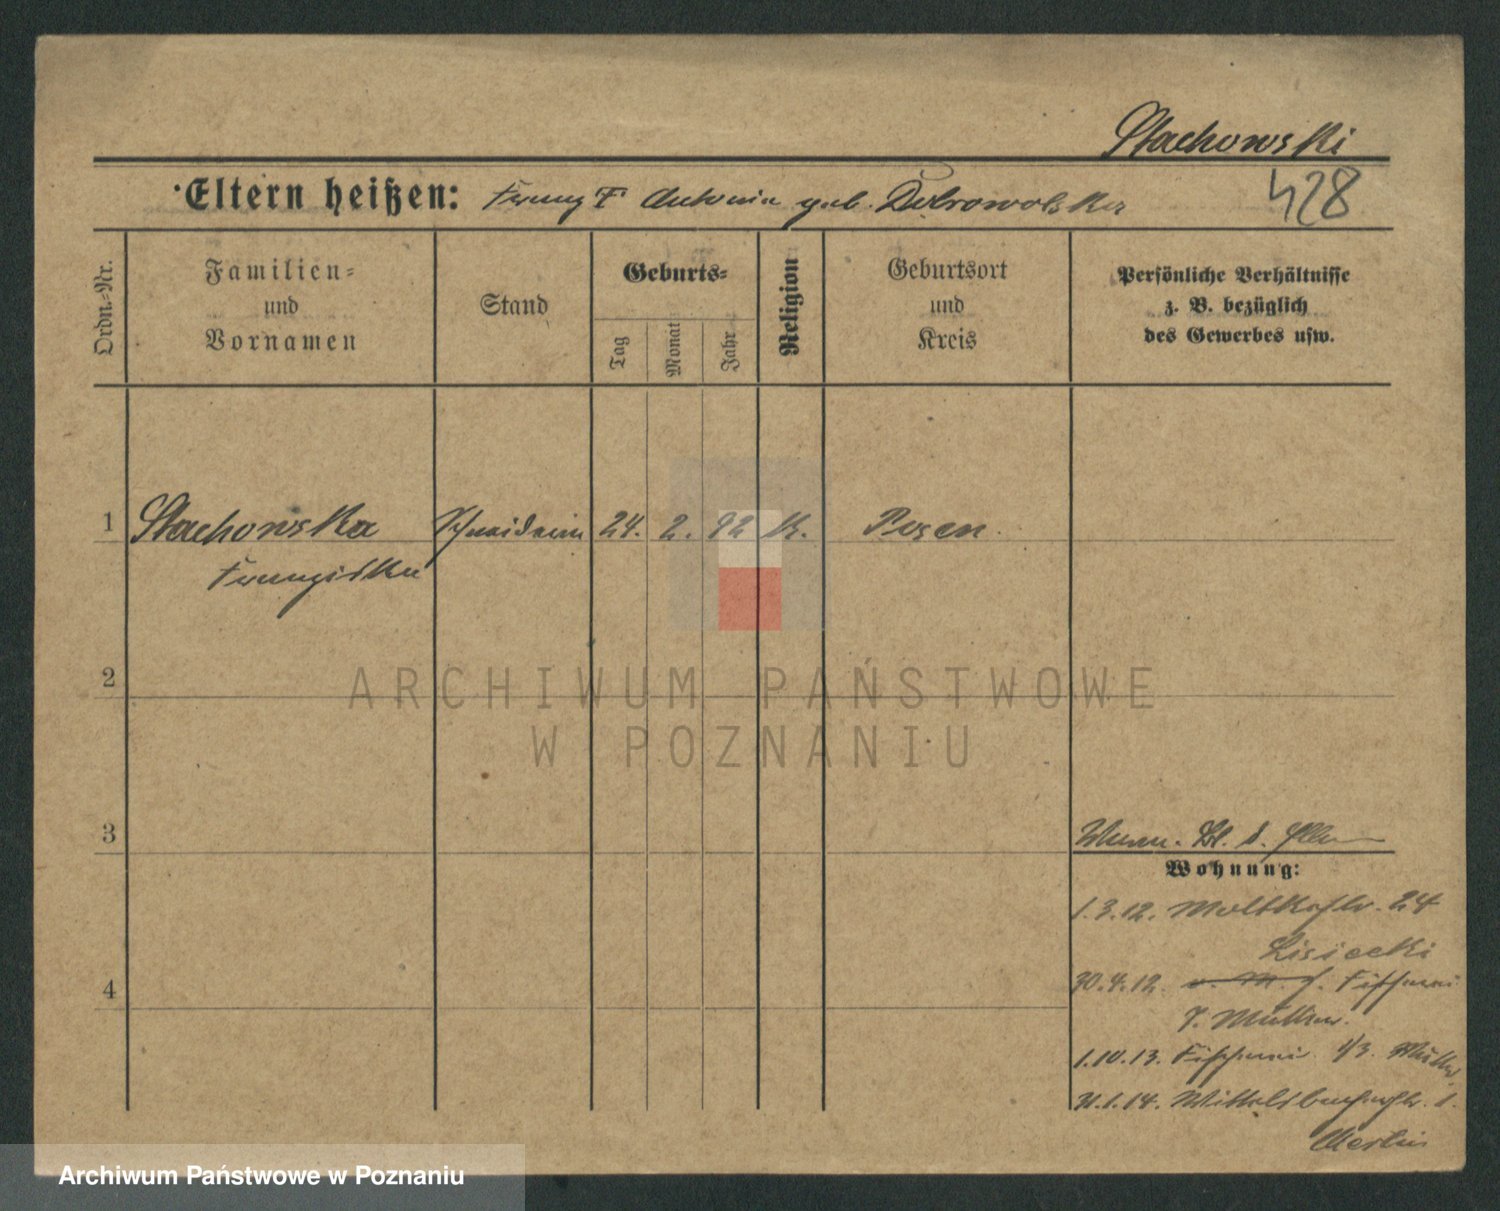 Stachowski
Eltern heißen: Franz † Antonia geb. Dobrowolska
428
Ordn.=Nr.
Familien=
und
Vornamen
Stand
Geburts=
Tag
Monat
Jahr
Religion
Geburtsort
und
Kreis
Persönliche Verhältnisse
z. B. bezüglich
des Gewerbes usw.
1 Stachowska Schneiderin 24. 2. 92 K. Posen
Franziska
2
ARCHIWUM PAŃSTWOWE
W POZNANIU
3
Wohnung:
1.3.12. Moltkestr. 24
Lisiecki
4
30.4.12. Fischerei
b. Mutter.
1.10.13. Fischerei 1/3. Mutter
21.1.14. Wittelsbacherstr. 1.
Mertin
Archiwum Państwowe w Poznaniu